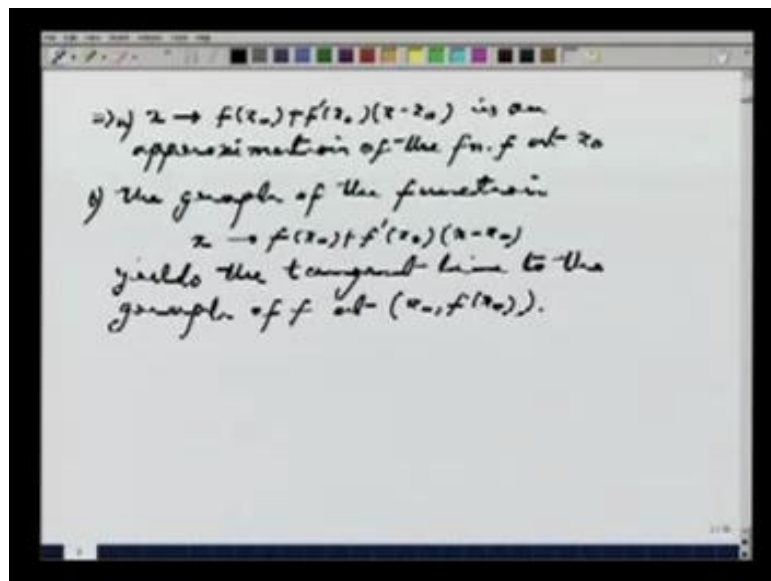 ⇒) a) x → f(x₀) + f'(x₀)(x-x₀) is an
approximation of the fn. f at x₀
b) The graph of the function
x → f(x₀) + f'(x₀)(x-x₀)
yields the tangent line to the
graph of f at (x₀, f(x₀)).